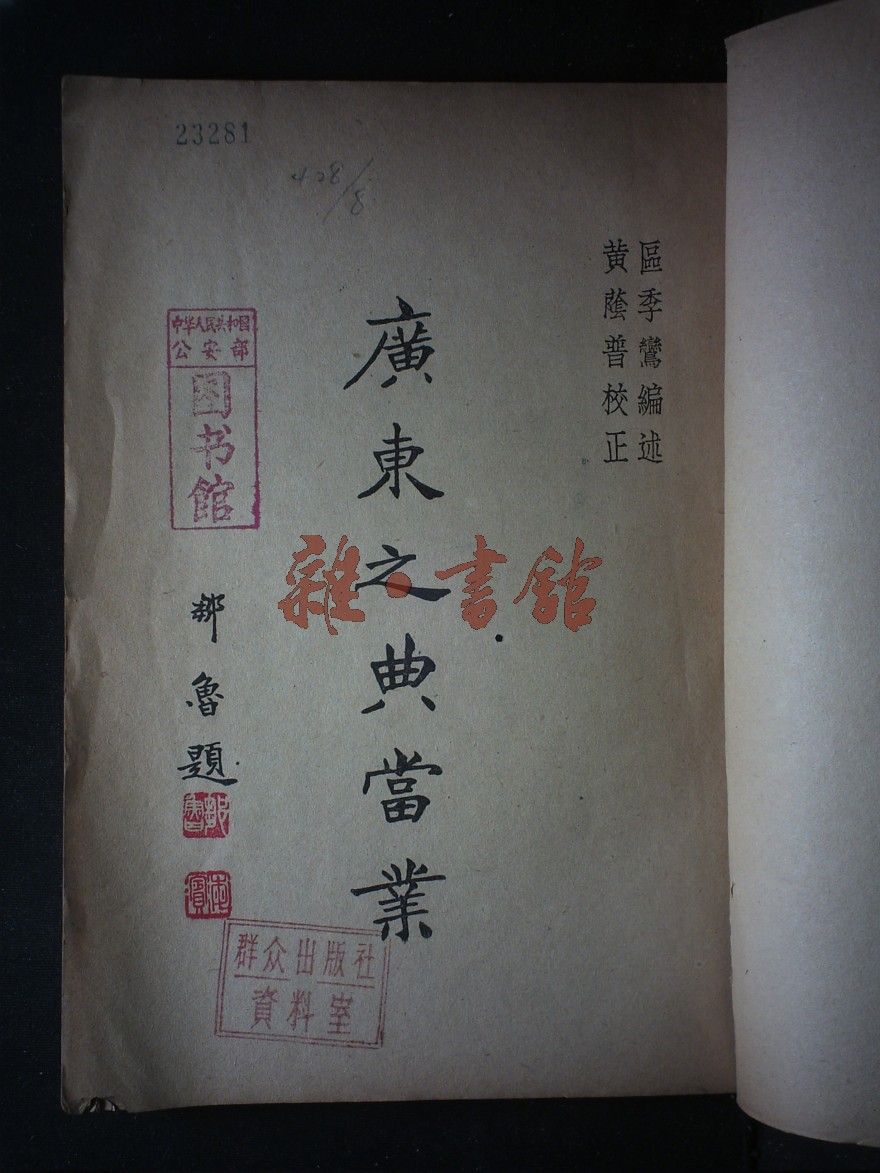 23281
428/8
區季鸞編述
黄蔭普校正
廣東之典當業
中华人民共和国
公安部
图书馆
雜·書館
鄒魯題
鄒魯
海濱
群众出版社
資料室